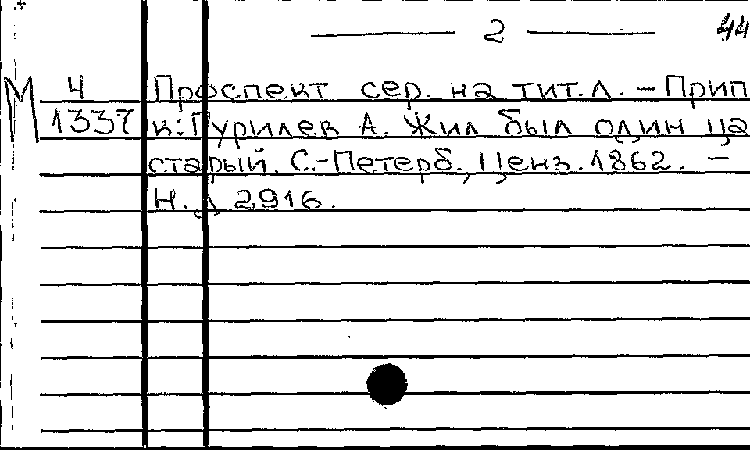 — 2 — 44
М 4 Проспект сер. на тит. л. – Прип
1337 к: Гурилев А. Жил был один ца
старый. С.-Петерб., Ценз. 1862. –
Н. д. 2916.